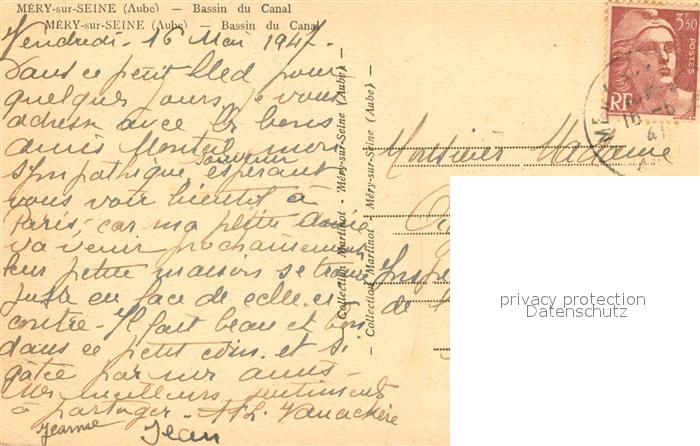 MÉRY-sur-SEINE (Aube) — Bassin du Canal
MÉRY-sur-SEINE (Aube) — Bassin du Canal
Vendredi - 16 Mai 1947.
Dans ce petit bled pour
quelques jours je vous
adresse avec les bons
amis Monteil mon
sympathique souvenir espérant
vous voir bientôt à
Paris, car ma petite amie
va venir prochainement
leur petite maison se trouve
juste en face de celle-ci
contre - Il fait beau et bon
dans ce petit coin et si
gâtée par nos amis -
Mes meilleurs sentiments
à partager -
Jeanne
Jean
Collection Martinot - Méry-sur-Seine (Aube) —
Collection Martinot - Méry-sur-Seine (Aube) —
3f50
POSTES
RF
Monsieur Madame
Inspe
de
privacy protection
Datenschutz